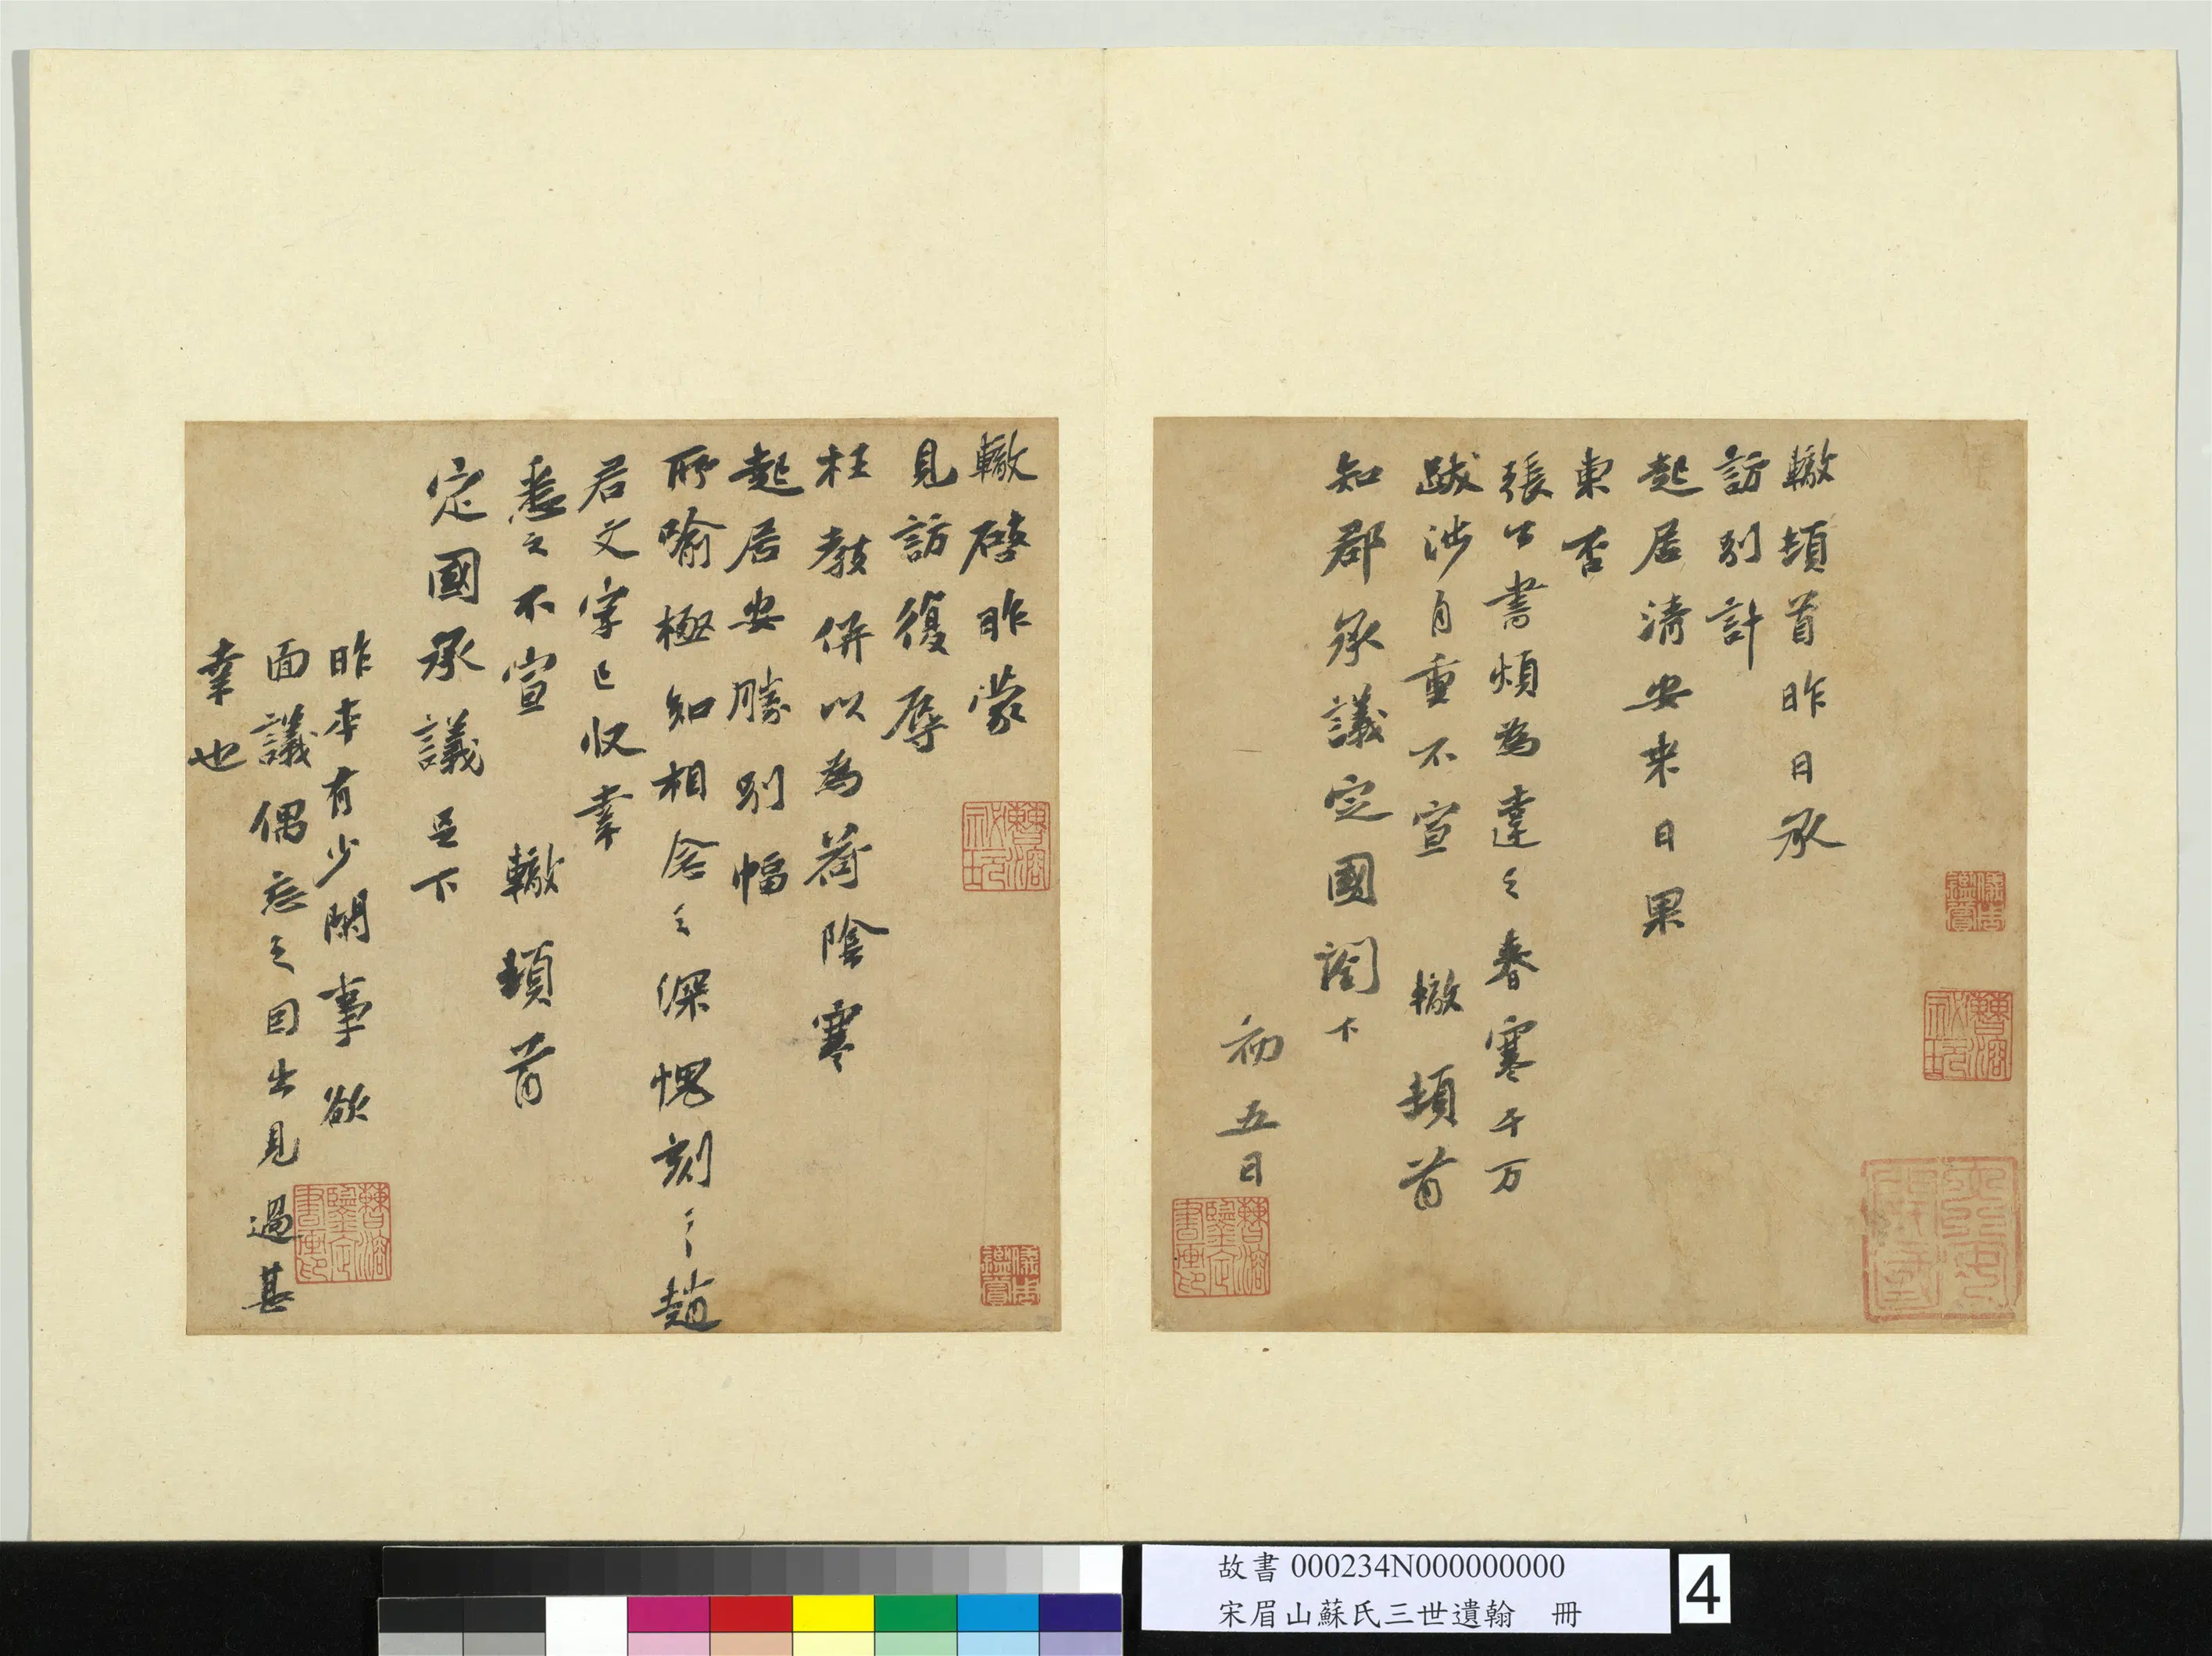 轍頓首昨日承
訪別計
起居清安來日果
東否
張公書煩為達之春寒千万
跋涉自重不宣 轍頓首
知郡承議定國閤下
初五日
轍啓昨蒙
見訪復辱
枉教併以為荷陰寒
起居安勝別幅
所喻極知相念之深愧刻〻趙
君文字已收幸
悉之不宣 轍頓首
定國承議足下
昨本有少閑事欲
面議偶忘之因出見過甚
幸也
曹溶
儀周鑑賞
曹溶鑒定書畫印
故書 000234N000000000
宋眉山蘇氏三世遺翰 冊
4